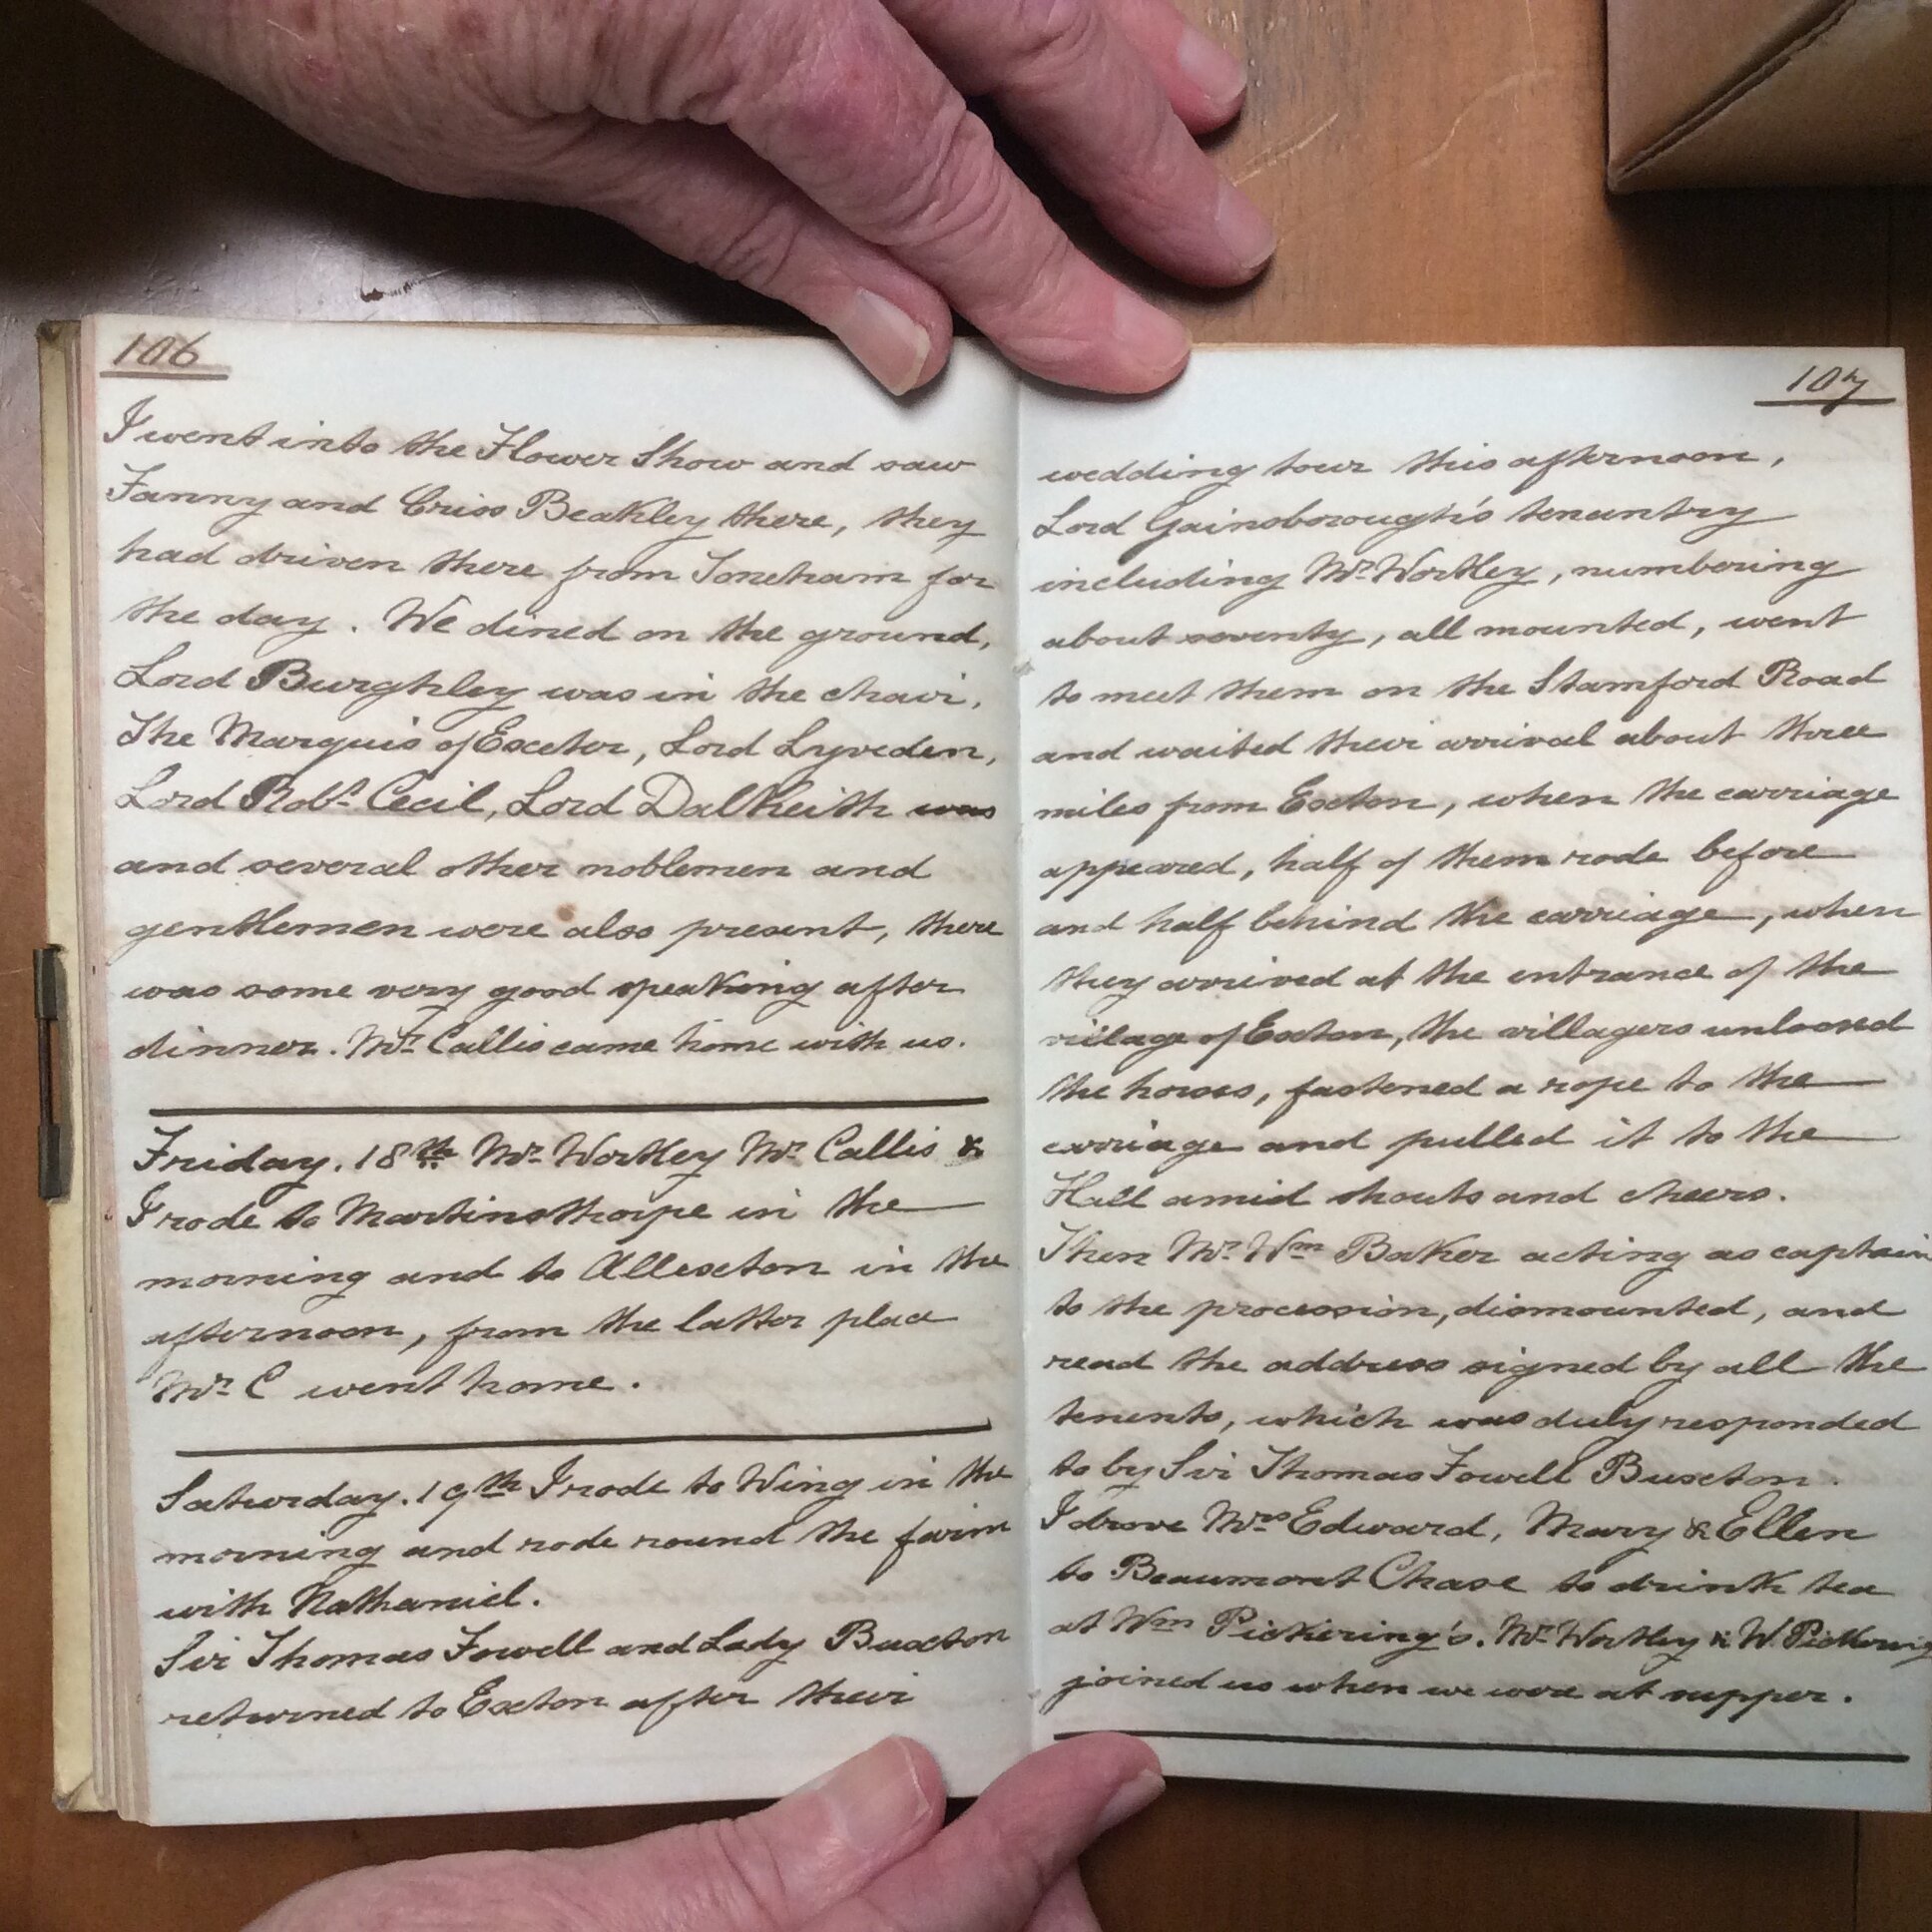 106
I went into the Flower Show and saw
Fanny and Criss Beakley there, they
had driven there from Toneham for
the day. We dined on the ground,
Lord Burghley was in the chair,
The Marquis of Exeter, Lord Lyveden,
Lord Robt. Cecil, Lord Dalkeith was
and several other noblemen and
gentlemen were also present, there
was some very good speaking after
dinner. Mr. Callis came home with us.
Friday. 18th Mr. Wortley Mr. Callis &
I rode to Martinsthorpe in the
morning and to Allexton in the
afternoon, from the latter place
Mr. C went home.
Saturday. 19th I rode to Wing in the
morning and rode round the farm
with Nathaniel.
Sir Thomas Fowell and Lady Buxton
returned to Exton after their
107
wedding tour this afternoon,
Lord Gainsborough's tenantry
including Mr. Wortley, numbering
about seventy, all mounted, went
to meet them on the Stamford Road
and waited their arrival about three
miles from Exton, when the carriage
appeared, half of them rode before
and half behind the carriage, when
they arrived at the entrance of the
village of Exton, the villagers unloosed
the horses, fastened a rope to the
carriage and pulled it to the
Hall amid shouts and cheers.
Then Mr. Wm Baker acting as captain
to the procession, dismounted, and
read the address signed by all the
tenents, which was duly responded
to by Sir Thomas Fowell Buxton.
I drove Mrs Edward, Mary & Ellen
to Beaumont Chase to drink tea
at Wm Pickering's. Mr. Wortley & W. Pickering
joined us when we were at supper.